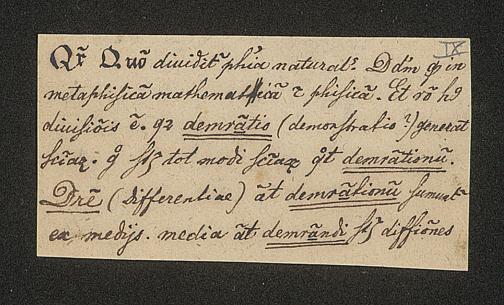 IX
Qr̃ Quō diuidit᷑ ph̃ia natural᷒. Dd'm ꝙ in
metaphisicā mathematicā ⁊ phisicā. Et rō h9
diuisiōis ē. q2 demrātio (demonstratio?) generat
sciāꝝ. g̊ st̄ tot modi sciāꝝ q̊t demrātionū.
Drē (differentiae) āt demrātionū sumunt᷑
ex medijs. media āt demrāndi st̄ diffiōnes